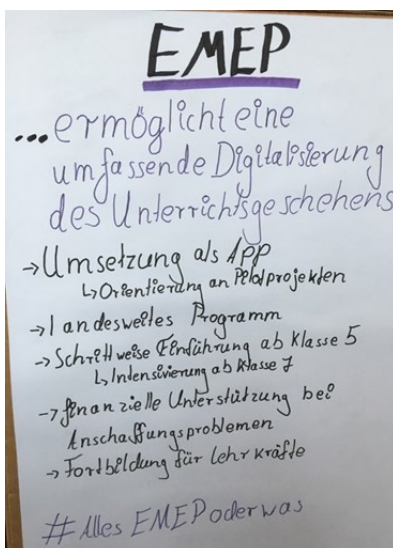 EMEP
...ermöglicht eine
umfassende Digitalisierung
des Unterrichtsgeschehens
→Umsetzung als App
↳Orientierung an Pilotprojekten
→landesweites Programm
→Schrittweise Einführung ab Klasse 5
↳Intensivierung ab Klasse 7
→finanzielle Unterstützung bei
Anschaffungsproblemen
→Fortbildung für Lehrkräfte
#Alles EMEPoderwas